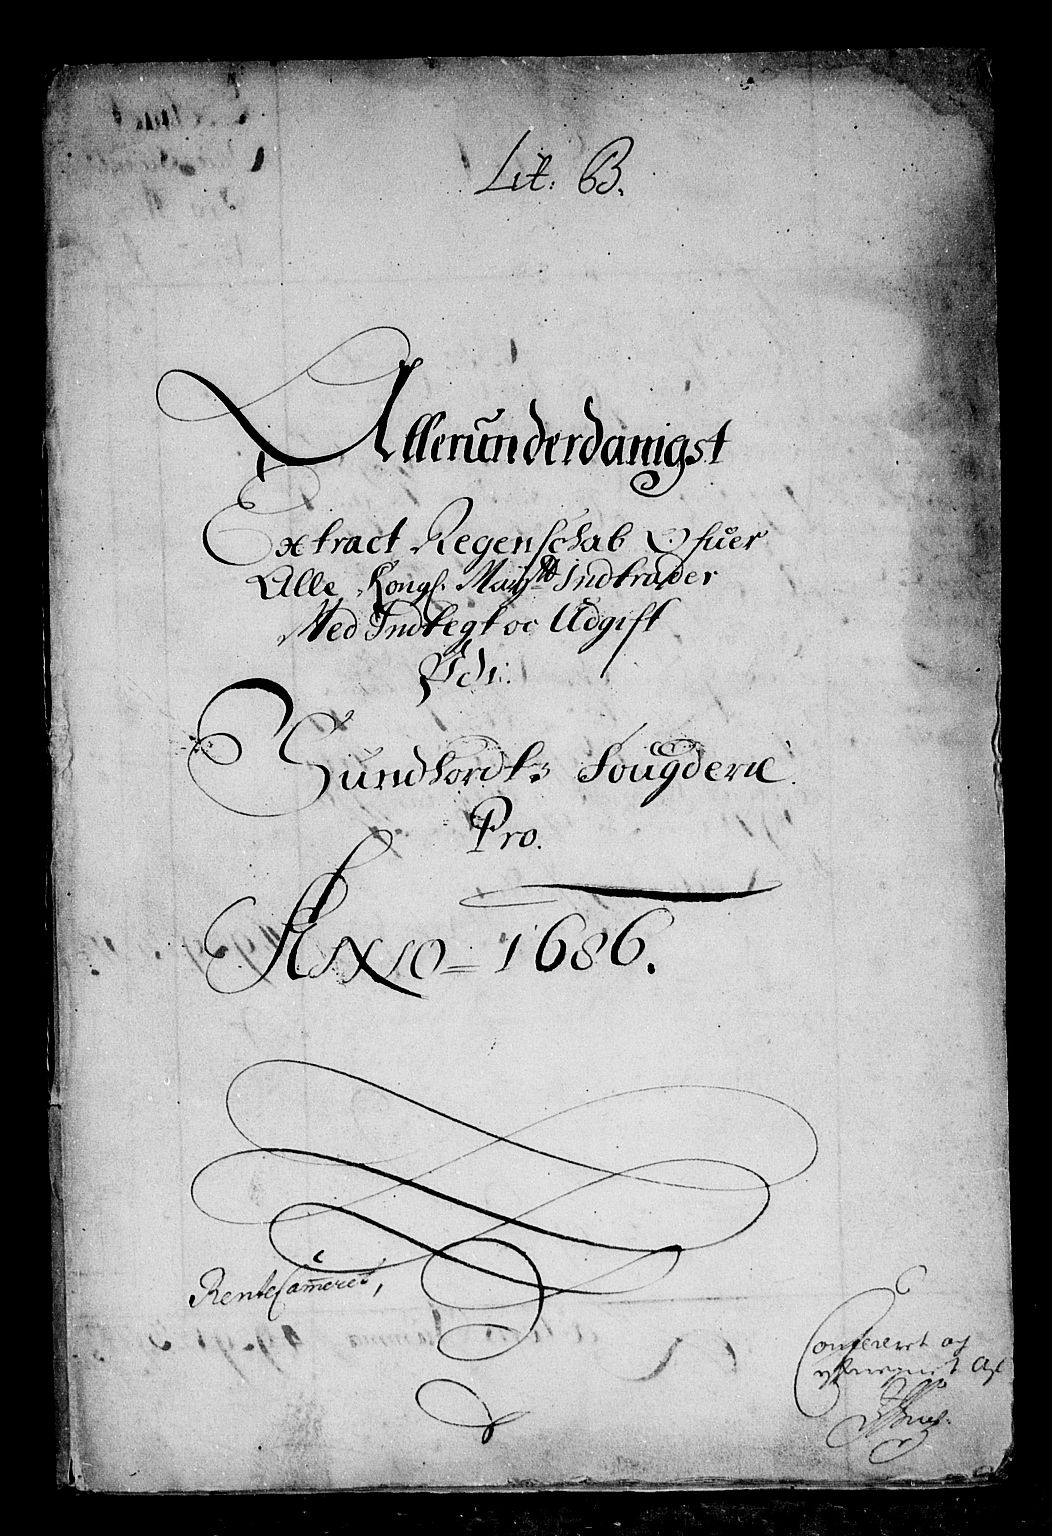 Lit: B.
Allerunderdanigst
Extract Regenschab Ofuer
Alle Kongl. May.tt Indtrader
Med Indtegt oc Udgift
Udi
Sundhordtz fougderie
Pro.
Anno 1686.
RenteCam̄eret,
Confereret og